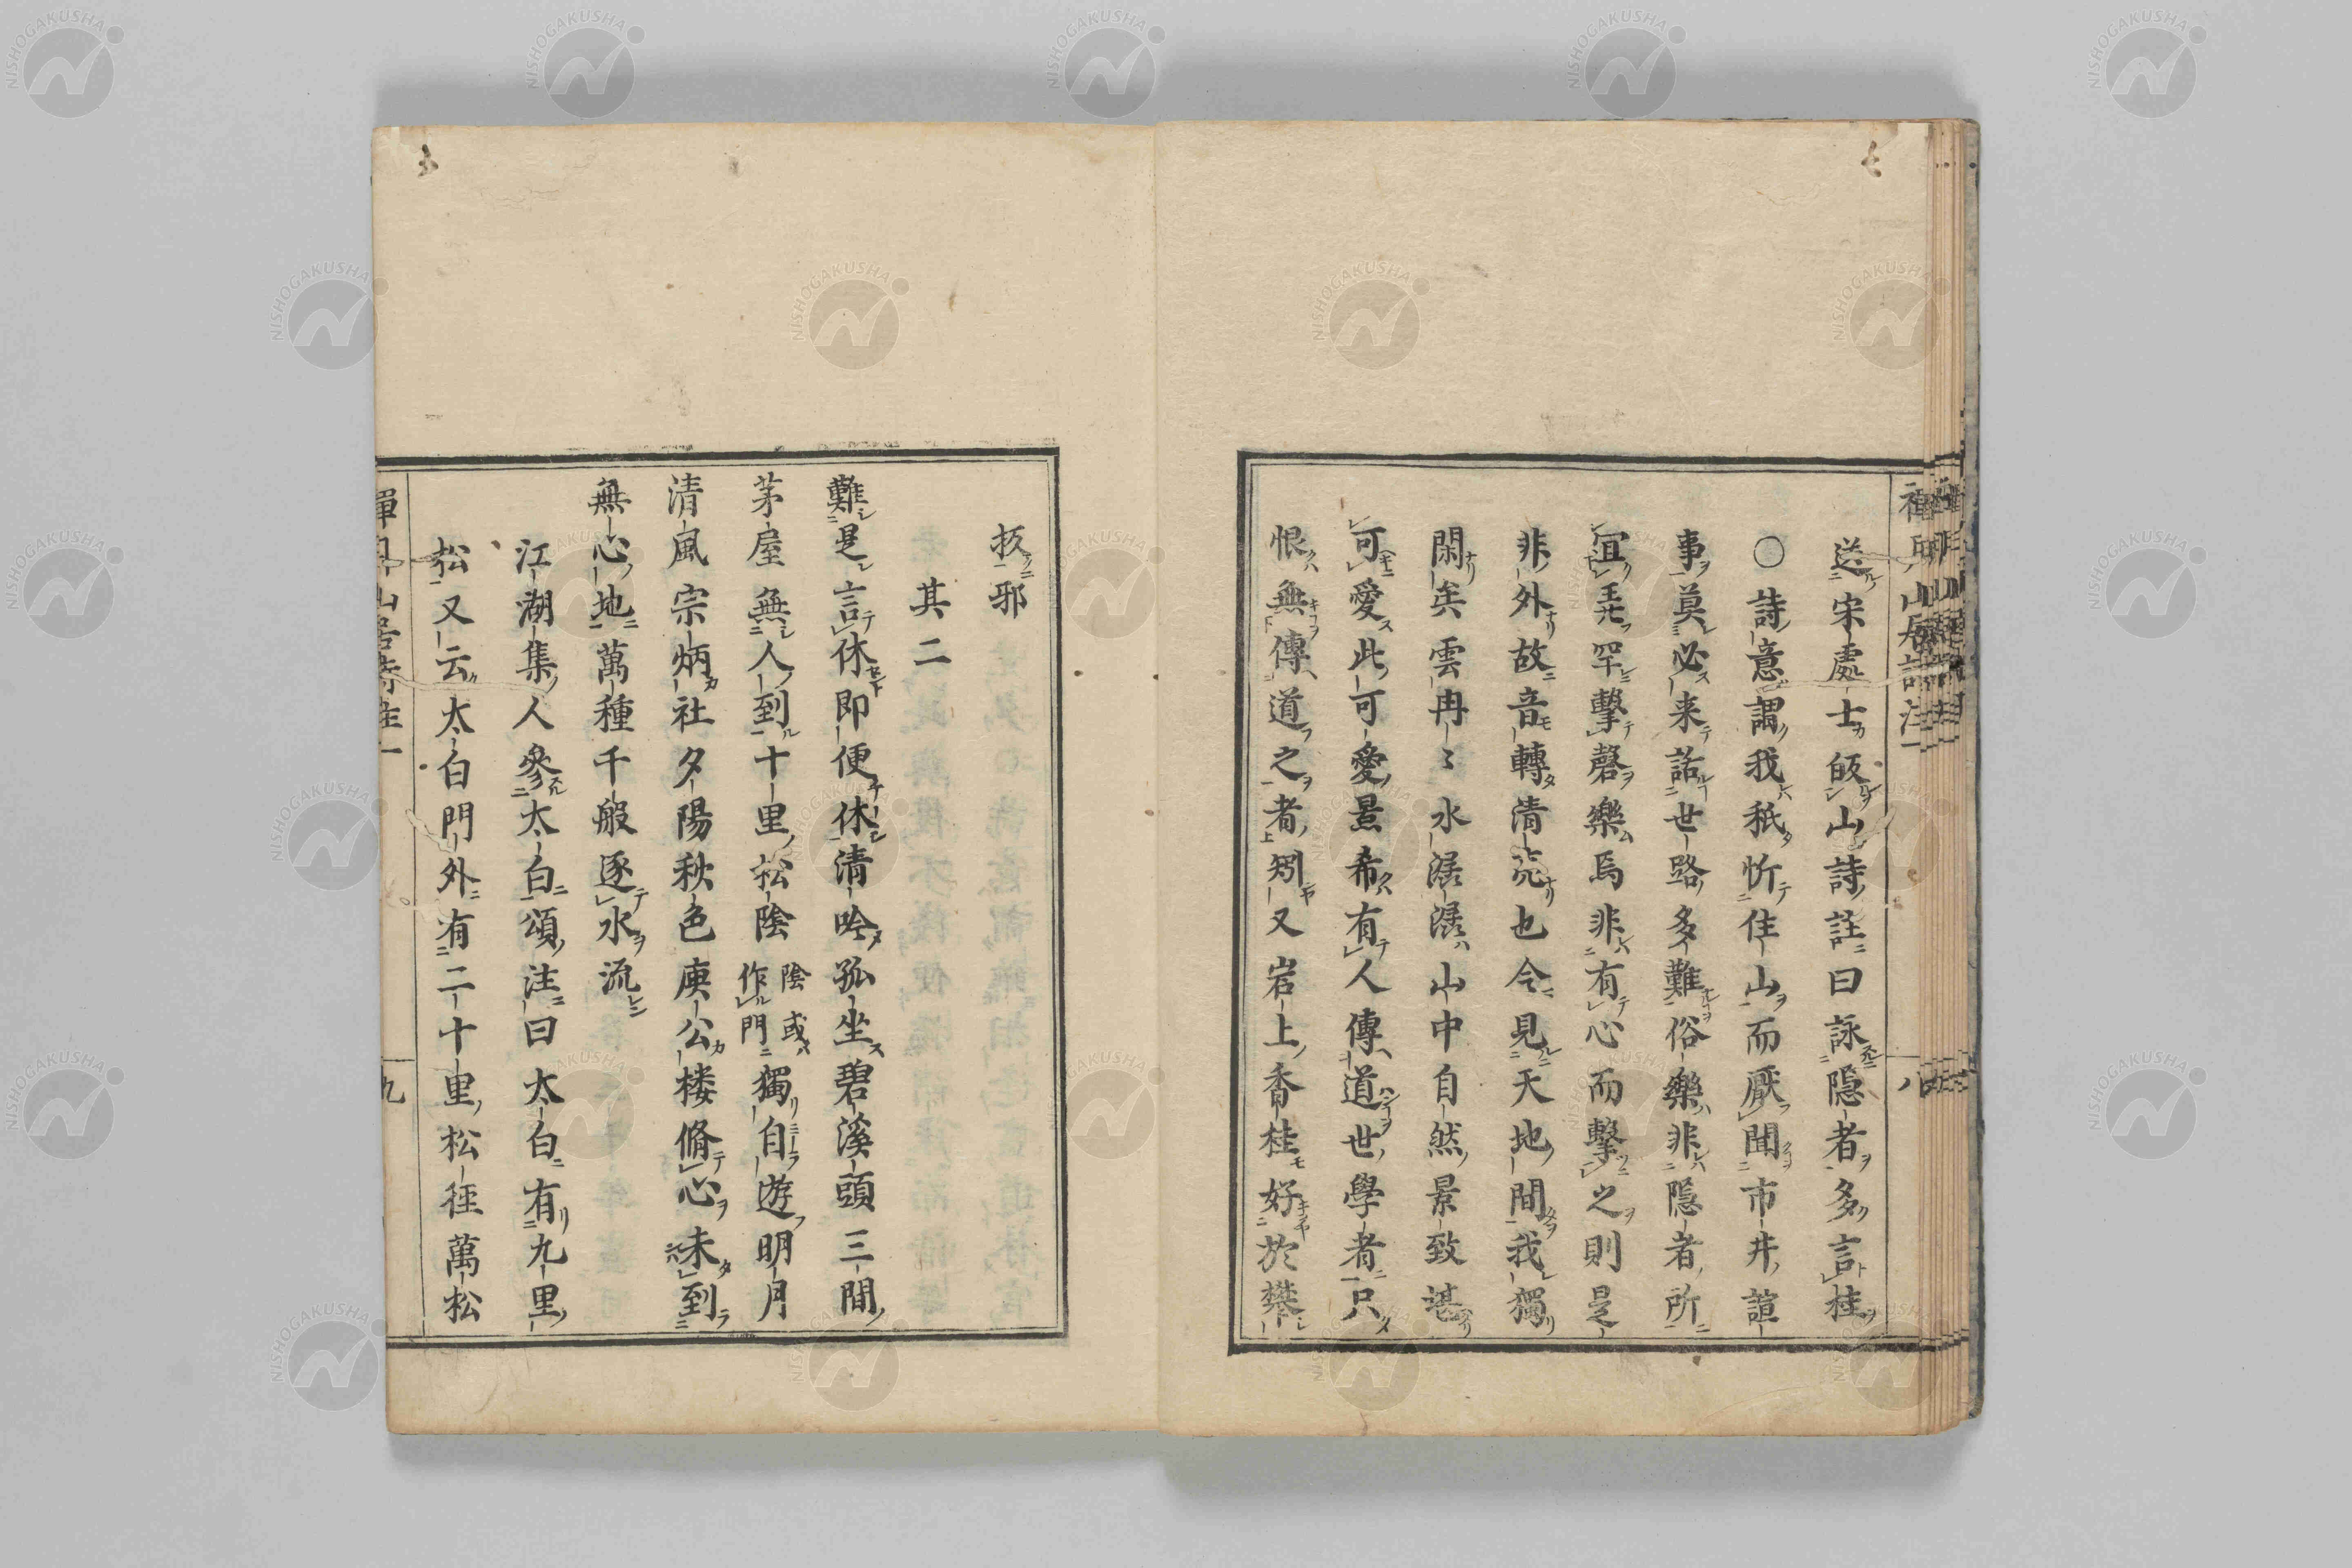 送宋處士皈山詩註曰詠隠者多言桂
○詩意謂我秖忻住山而厭聞市井諠
事莫必来話世路多難俗樂非隠者所
冝㒵罕擊磬樂焉非有心而擊之則是
非外故音轉清㳘也今見天地間我獨
閑矣雲冉〻水潺潺山中自然景致堪
可愛此可愛景希有人傳道世學者只
恨無傳道之者矧又岩上香桂好於攀
禅月山居詩注一
八
扳邪
其二
難是言休即便休清吟孤坐碧溪頭三間
茅屋無人到十里松陰陰或作門獨自遊明月
清風宗炳社夕陽秋色庾公楼脩心未到
無心地萬種千般逐水流
江湖集人參太白頌注曰太白有九里
松又云太白門外有二十里松徑萬松
禪月山居詩註一
九
NISHOGAKUSHA